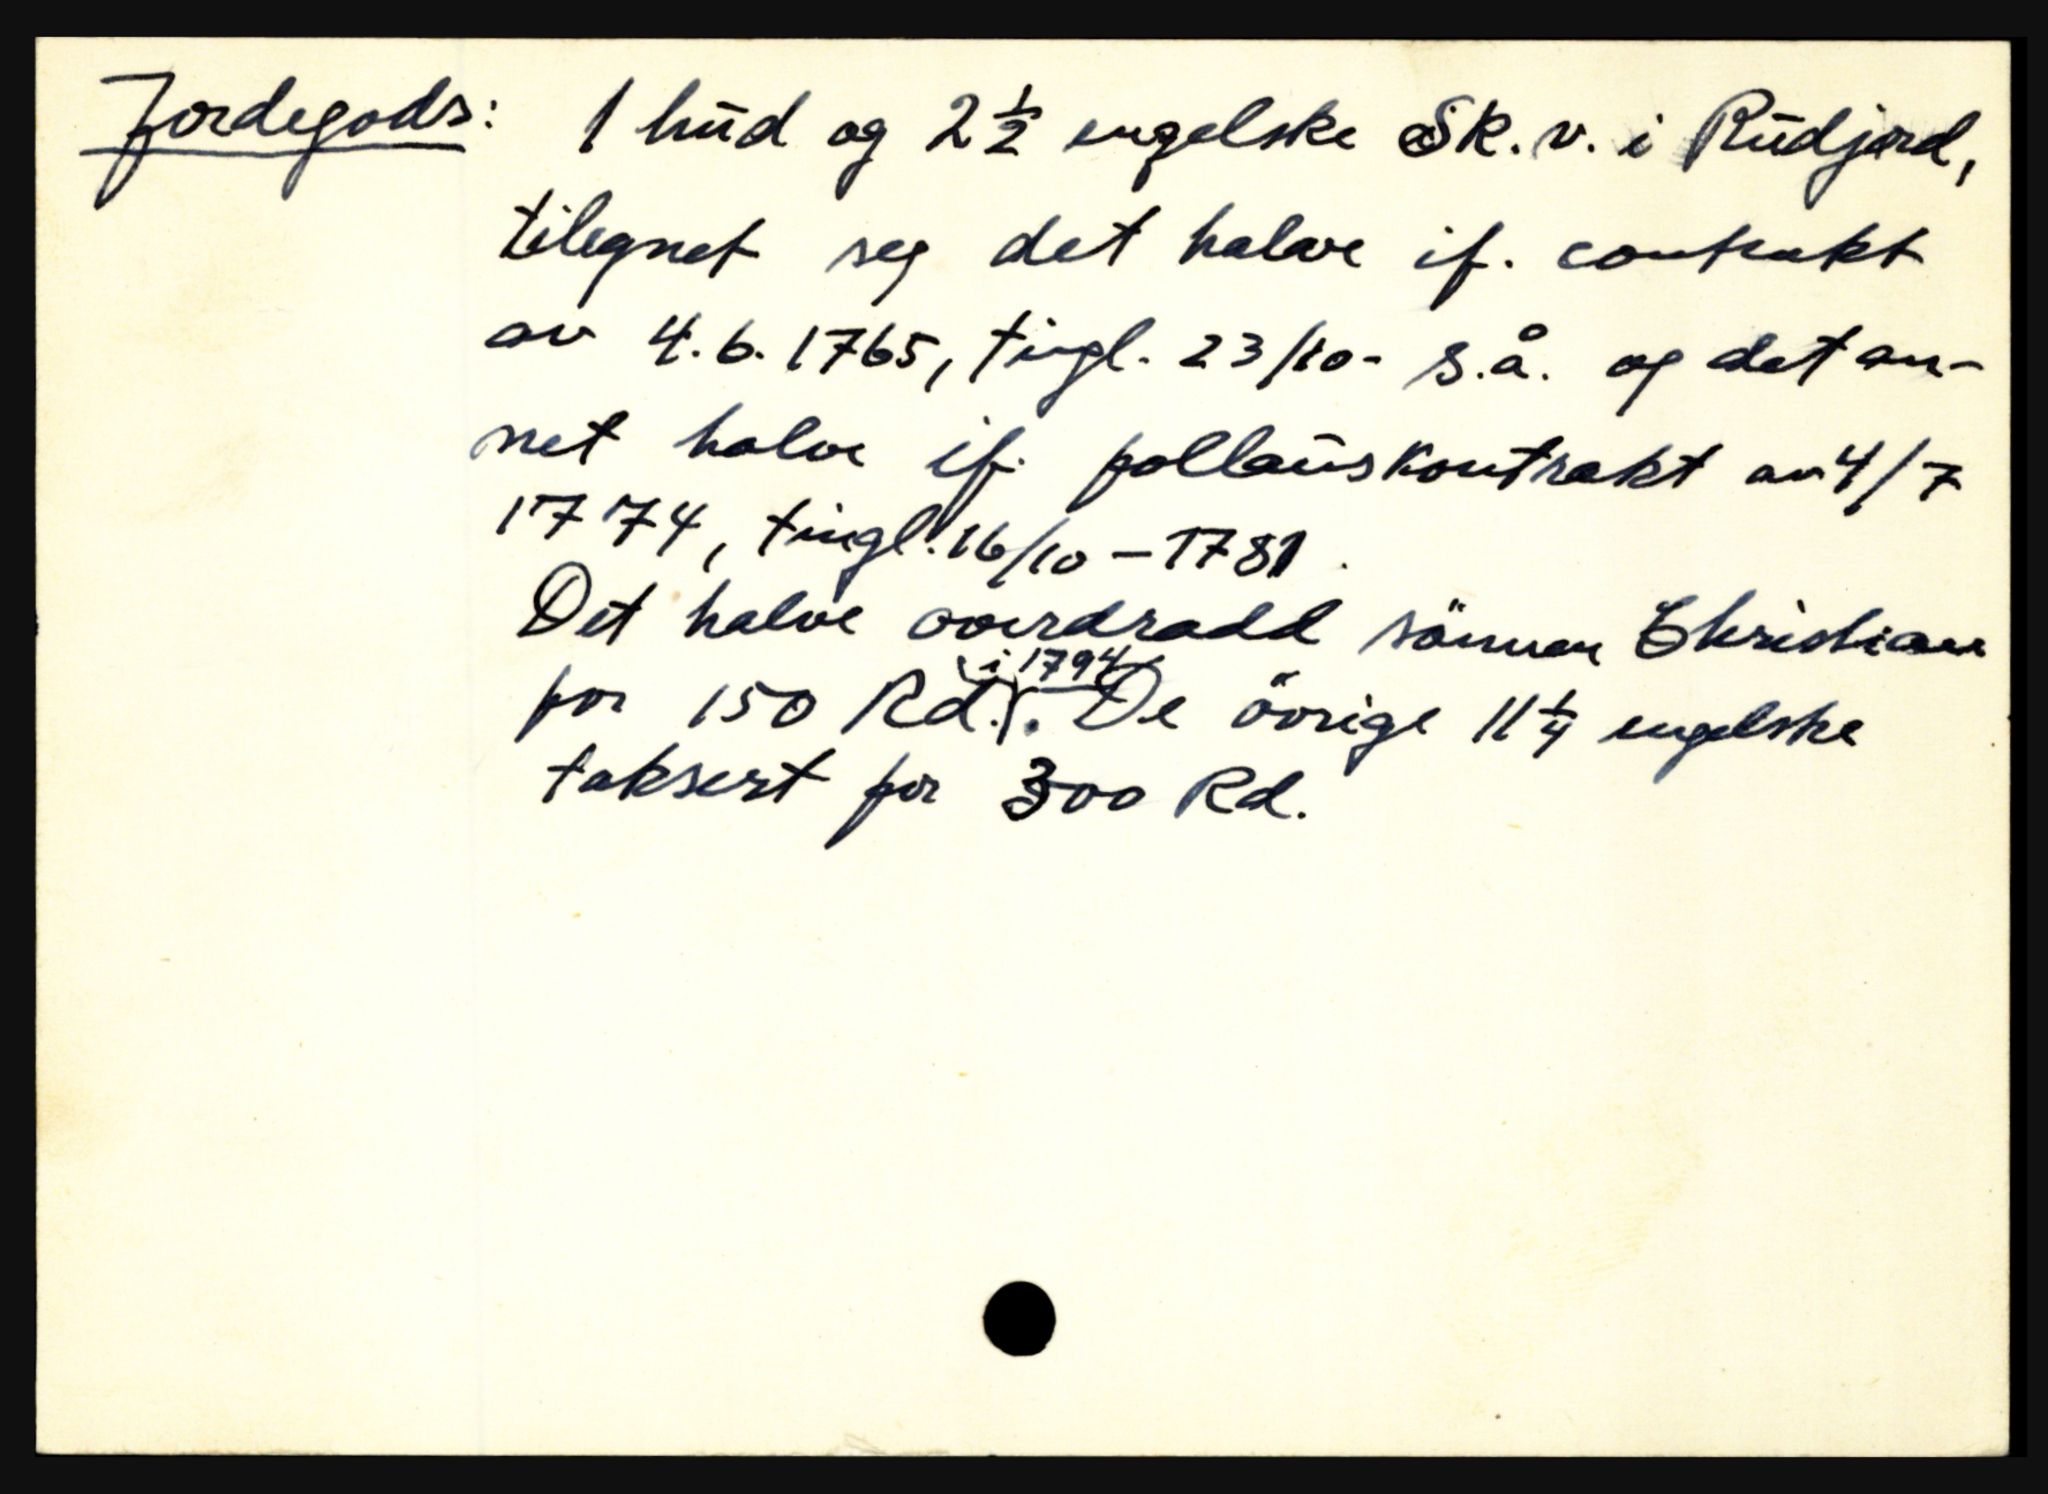 Jordegods: 1 hud og 2 1/2 engelske Sk. v. i Rudjord,
tilegnet seg det halve if. contrakt
av 4.6.1765, tingl. 23/10- s.å. og det an-
net halve if. pollauskontrakt av 4/7
1774, tingl. 16/10 - 1781.
Det halve overdradd sönnen Christian
i 1794
for 150 Rd. De övrige 11 1/4 engelske
taksert for 300 Rd.